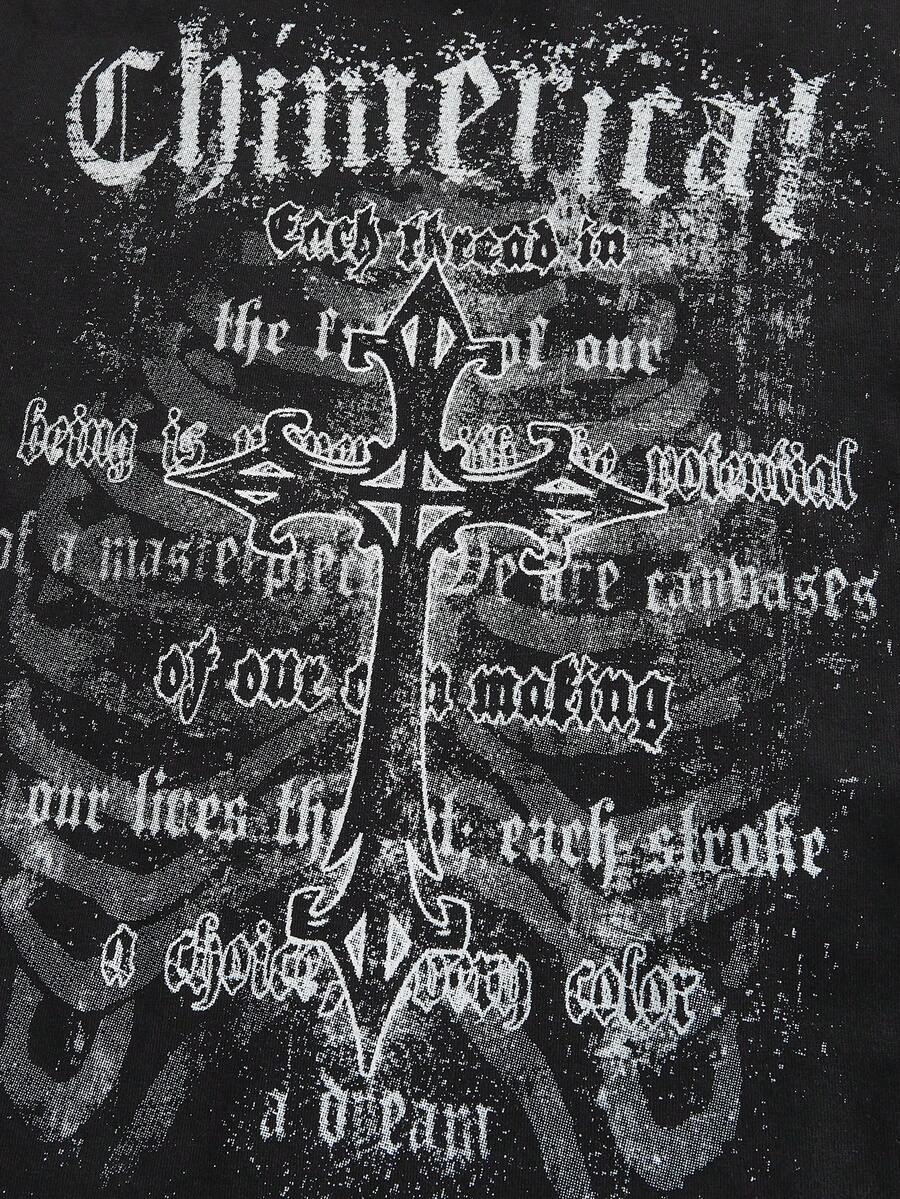 Chimerical
Each thread in
the of our
being is potential
of a masterpiece We are canvases
of our own making
our lives the each stroke
a choice, every color
a dream